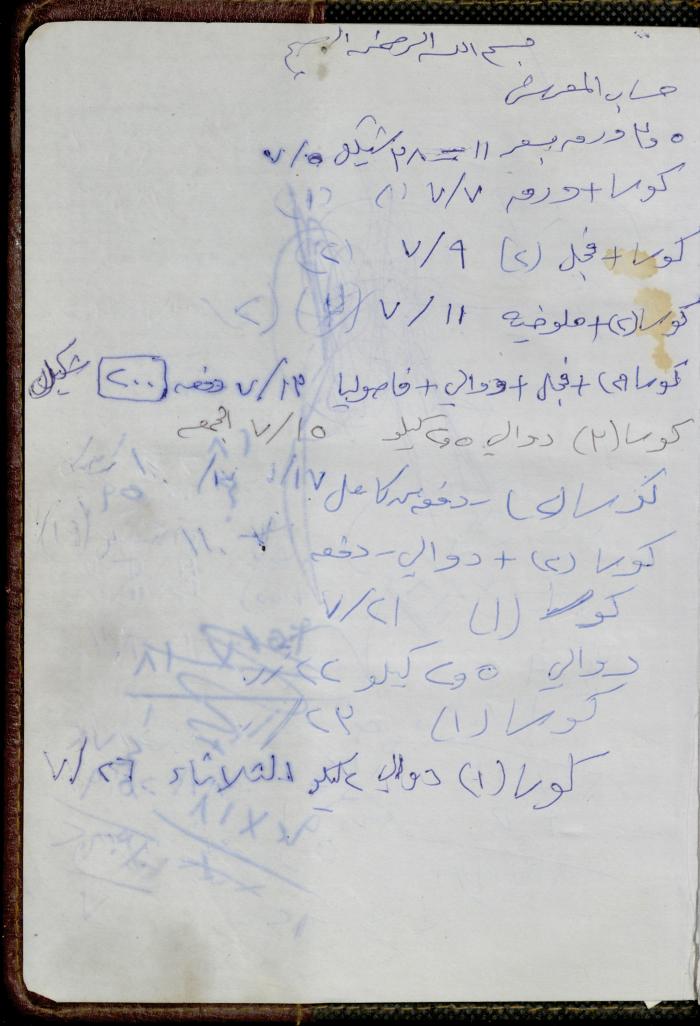 بسم الله الرحمن الرحيم
حساب المعرش
٣و٥ ورق بسعر ١١ = ٣٨ شيكل ٧/٥
كوسا + ورق ٧/٧ (١)
كوسا + فجل (٢) ٧/٩ (٢)
كوسا (٢) + ملوخيه ٧/١١
كوسا (٣) + فجل + دوالي + فاصوليا ٧/١٣ دفعه ٢٠٠ شيكل
كوسا (٣) دوالي ٥و٢ كيلو ٧/١٥ الجمعه
كوسا - دفعه كامل ٧/١٧
كوسا (٢) + دوالي - دفعه
كوسا (١) ٧/٢١
دوالي ٥و٢ كيلو ٢٢
كوسا (١) ٢٣
كوسا (١) دوالي ٢ كيلو الثلاثاء ٧/٢٦